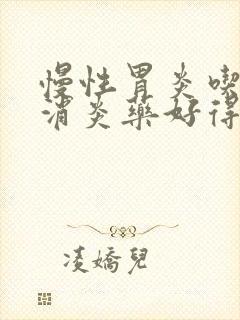 慢性胃炎喫
消炎藥好得
凌嬌兒